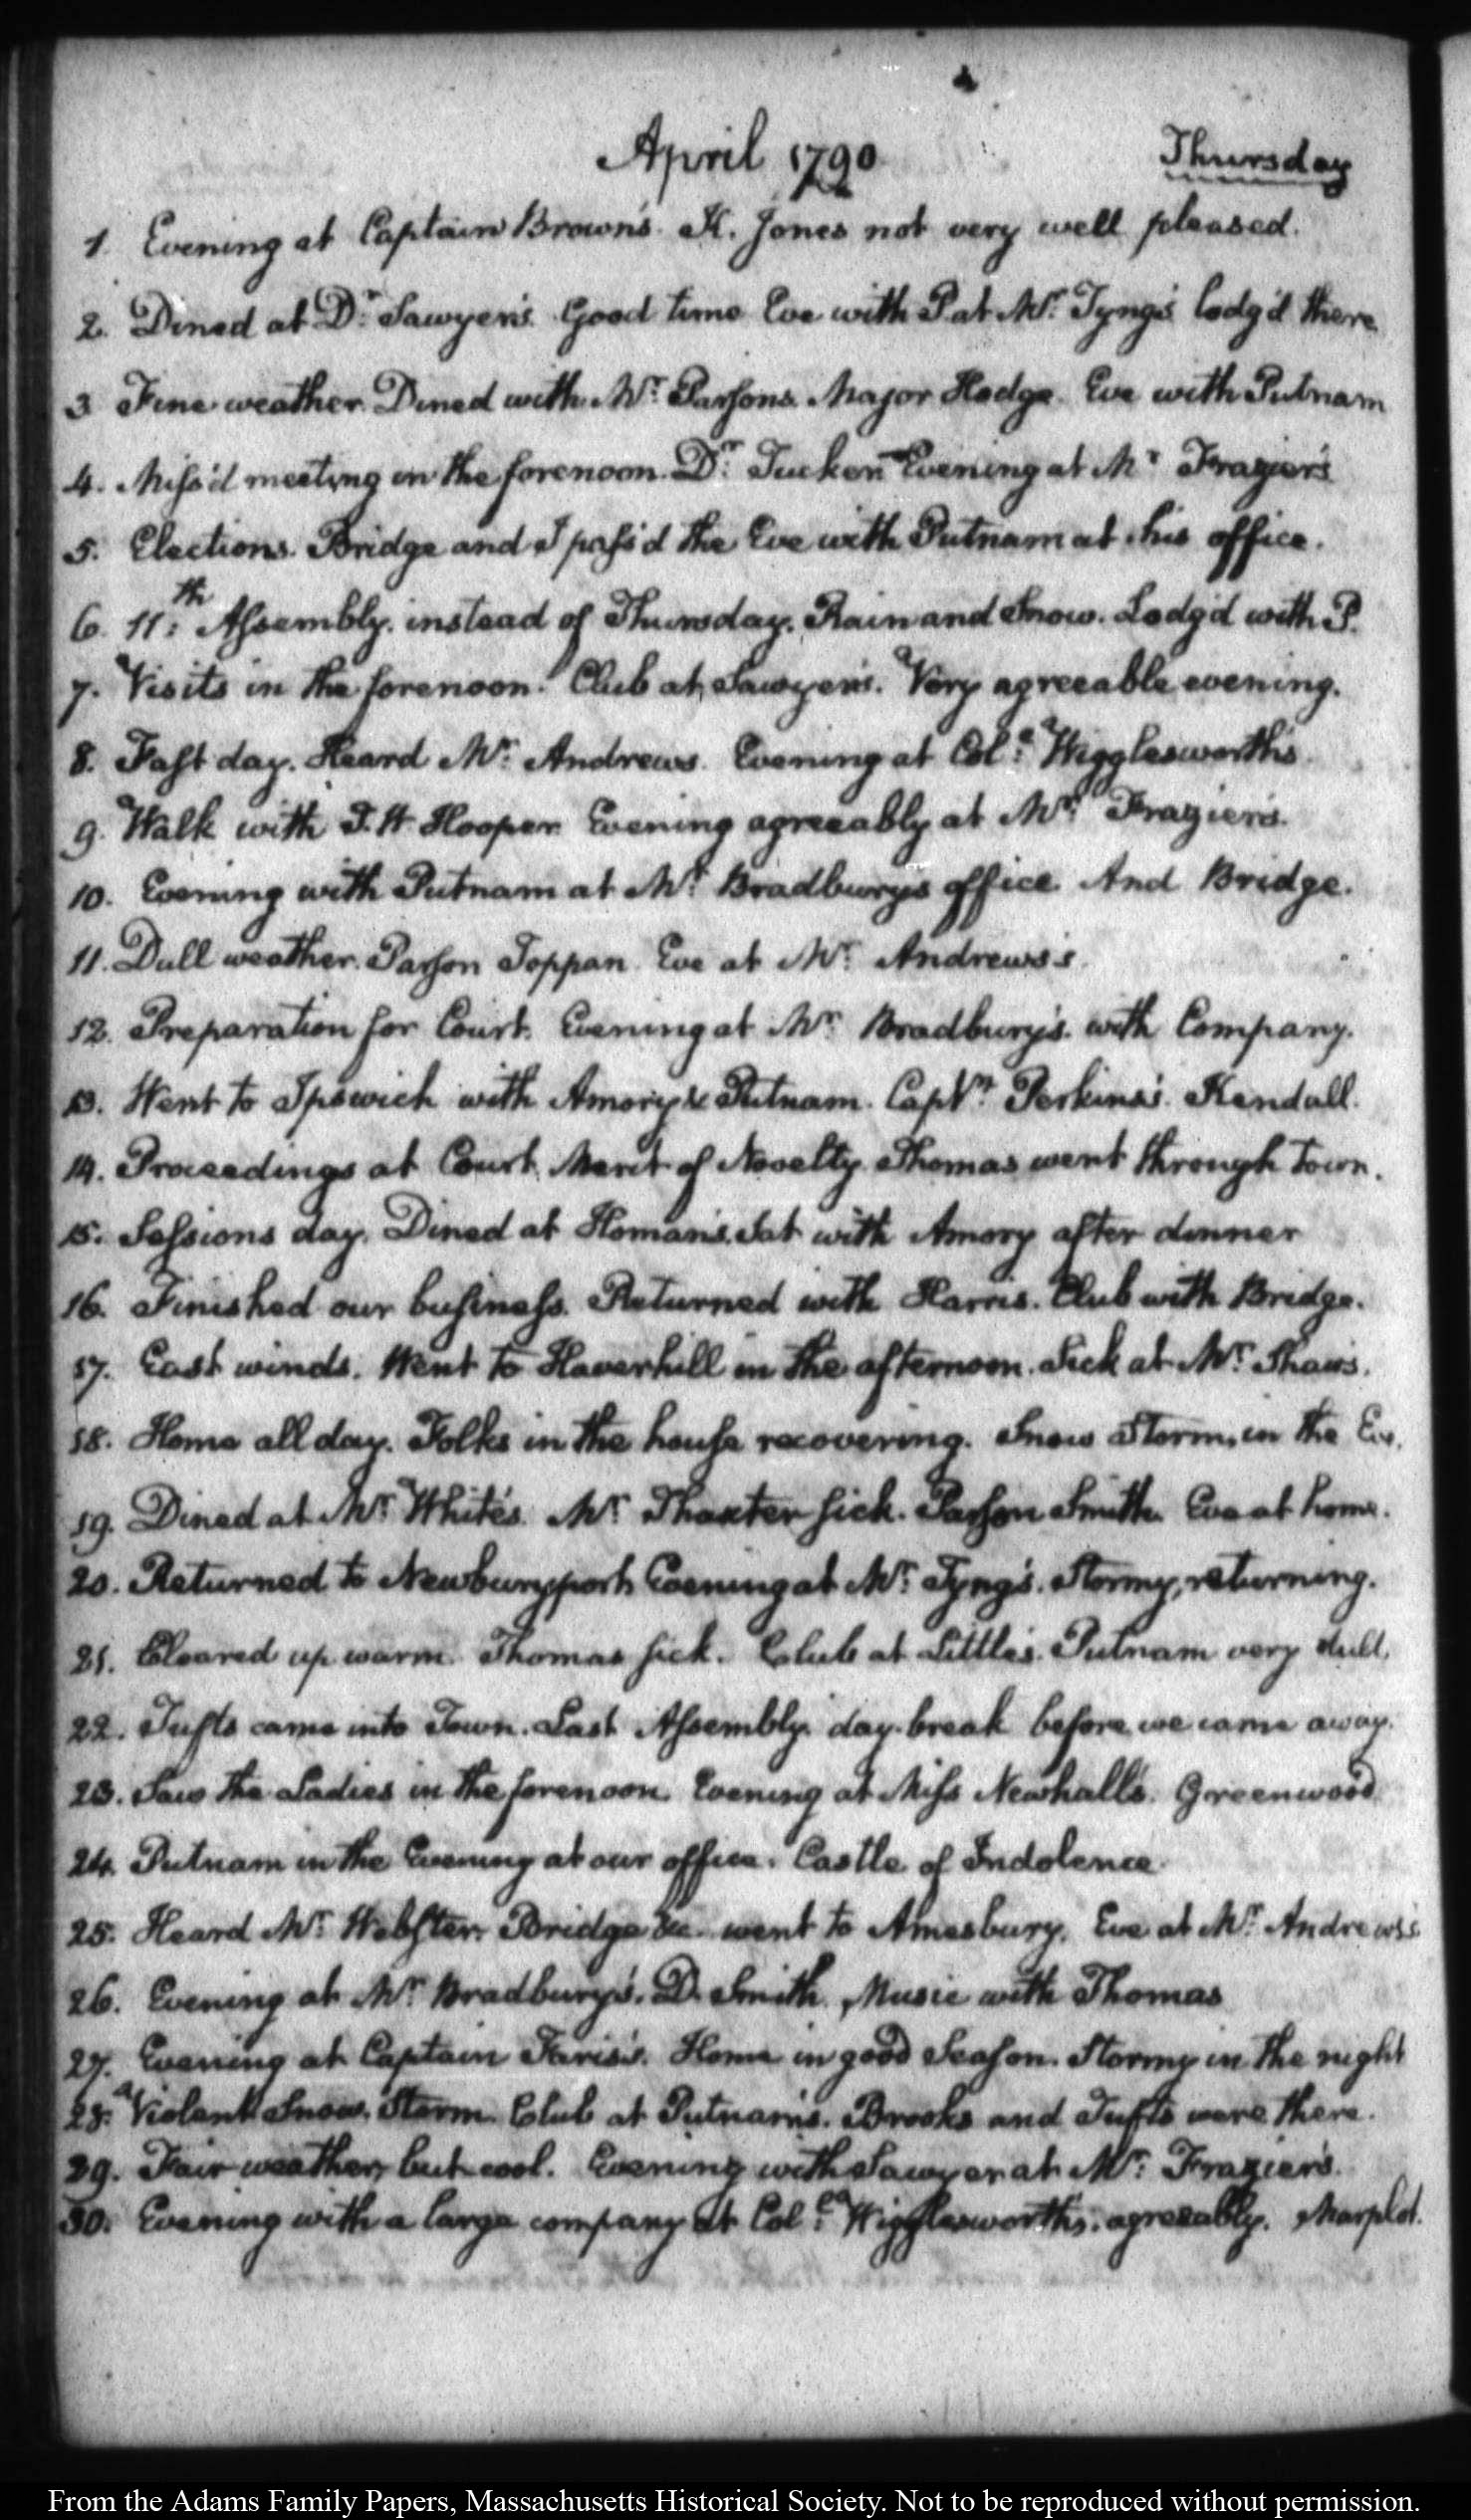 April 1790
Thursday
1. Evening at Captain Brown's. K. Jones not very well pleased.
2. Dined at Dr. Sawyer's. Good time Eve with P. at Mr. Tyng's lodg'd there
3 Fine weather. Dined with Mr. Parsons. Major Hodge. Eve with Putnam
4. Miss'd meeting in the forenoon. Dr. Tucker. Evening at Mr. Frazier's
5. Elections. Bridge and I pass'd the Eve with Putnam at his office.
6. 11th. Assembly. instead of Thursday. Rain and Snow. Lodg'd with P.
7. Visits in the forenoon. Club at Sawyer's. Very agreeable evening.
8. Fast day. Heard Mr. Andrews. Evening at Coll. Wigglesworth's
9. Walk with T. H. Hooper. Evening agreeably at Mr. Frazier's.
10. Evening with Putnam at Mr. Bradbury's office. And Bridge.
11. Dull weather. Parson Toppan. Eve at Mr. Andrews's.
12. Preparation for Court. Evening at Mr. Bradbury's. with Company.
13. Went to Ipswich with Amory & Putnam. Captn. Perkins's. Kendall.
14. Proceedings at Court. Merit of Novelty. Thomas went through town.
15. Sessions day. Dined at Homan's. Sat with Amory after dinner
16. Finished our business. Returned with Harris. Club with Bridge.
17. East winds. Went to Haverhill in the afternoon. Sick at Mr. Shaw's.
18. Home all day. Folks in the house recovering. Snow Storm, in the Eve.
19. Dined at Mr. White's. Mr. Thaxter sick. Parson Smith. Eve at home.
20. Returned to Newburyport. Evening at Mr. Tyng's. Stormy, returning.
21. Cleared up warm. Thomas sick. Club at Little's. Putnam very dull.
22. Tufts came into Town. Last Assembly. day-break before we came away.
23. Saw the Ladies in the forenoon. Evening at Miss Newhall's. Greenwood
24. Putnam in the Evening at our office. Castle of Indolence.
25. Heard Mr. Webster. Bridge &c. went to Amesbury. Eve at Mr. Andrews's
26. Evening at Mr. Bradbury's. D. Smith. Music with Thomas
27. Evening at Captain Faris's. Home in good Season. Stormy in the night
28. Violent Snow, Storm. Club at Putnam's. Brooks and Tufts were there.
29. Fair weather, but cool. Evening with Sawyer at Mr. Frazier's.
30. Evening with a large company at Coll. Wigglesworth's, agreeably. Marplot.
From the Adams Family Papers, Massachusetts Historical Society. Not to be reproduced without permission.